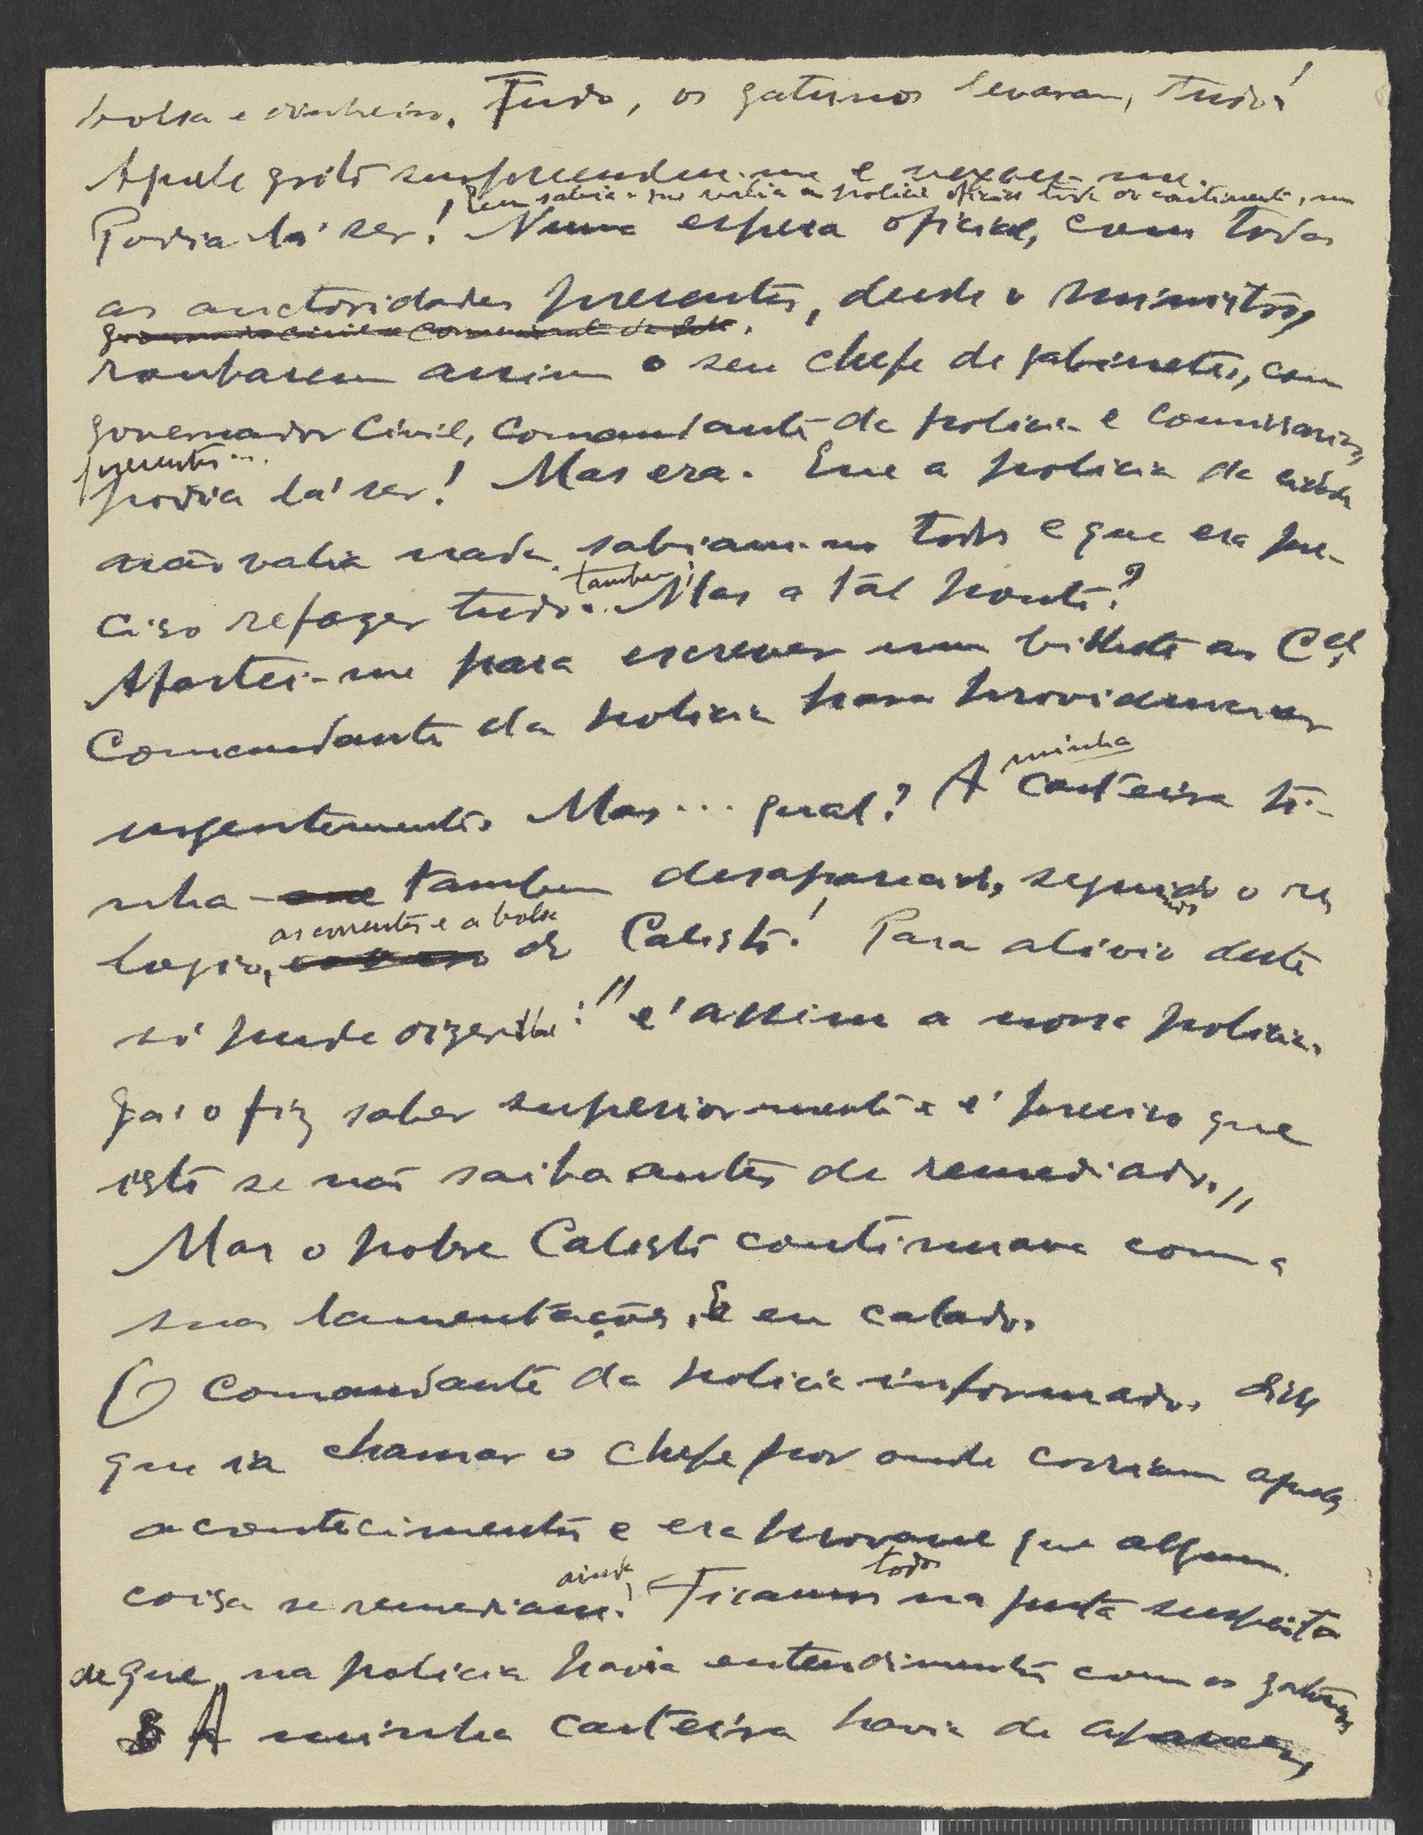 bolsa e dinheiro. Tudo, os gatunos levaram, tudo!
Aquele grito surpreendeu-me e vexou-me.
Bem sabia o que valia a policia oficial
Podia lá ser! Numa espera oficial, com todas
as auctoridades presentes, desde o ministro,
roubarem assim o seu chefe de gabinete, com
governador Civil, Comandante da policia e Comissarios
presentes...
podia lá ser! Mas era. Que a policia da cidade
não valia nada, sabiamo-lo todos e que era pre-
ciso refazer tudo tambem; Mas a tal ponto?
Afastei-me para escrever um bilhete ao Cel.
Comandante da policia para providenciar
urgentemente. Mas... qual? A minha carteira ti-
nha tambem desaparecido, seguindo o re-
logio, as correntes e a bolsa do Calisto! Para alivio deste
só pude dizer-lhe: "é assim a nossa policia.
Já o fiz saber superiormente e é preciso que
isto se não saiba antes de remediado."
Mas o pobre Calisto continuava com a
sua lamentações. E eu calado.
O Comandante da policia informado, disse
que ia chamar o chefe por onde corriam aqueles
acontecimentos e era provavel que alguma
coisa se remediasse ainda. Ficamos todos na justa suspeita
de que na policia havia entendimentos com os gatunos
A minha carteira havia de aparecer,